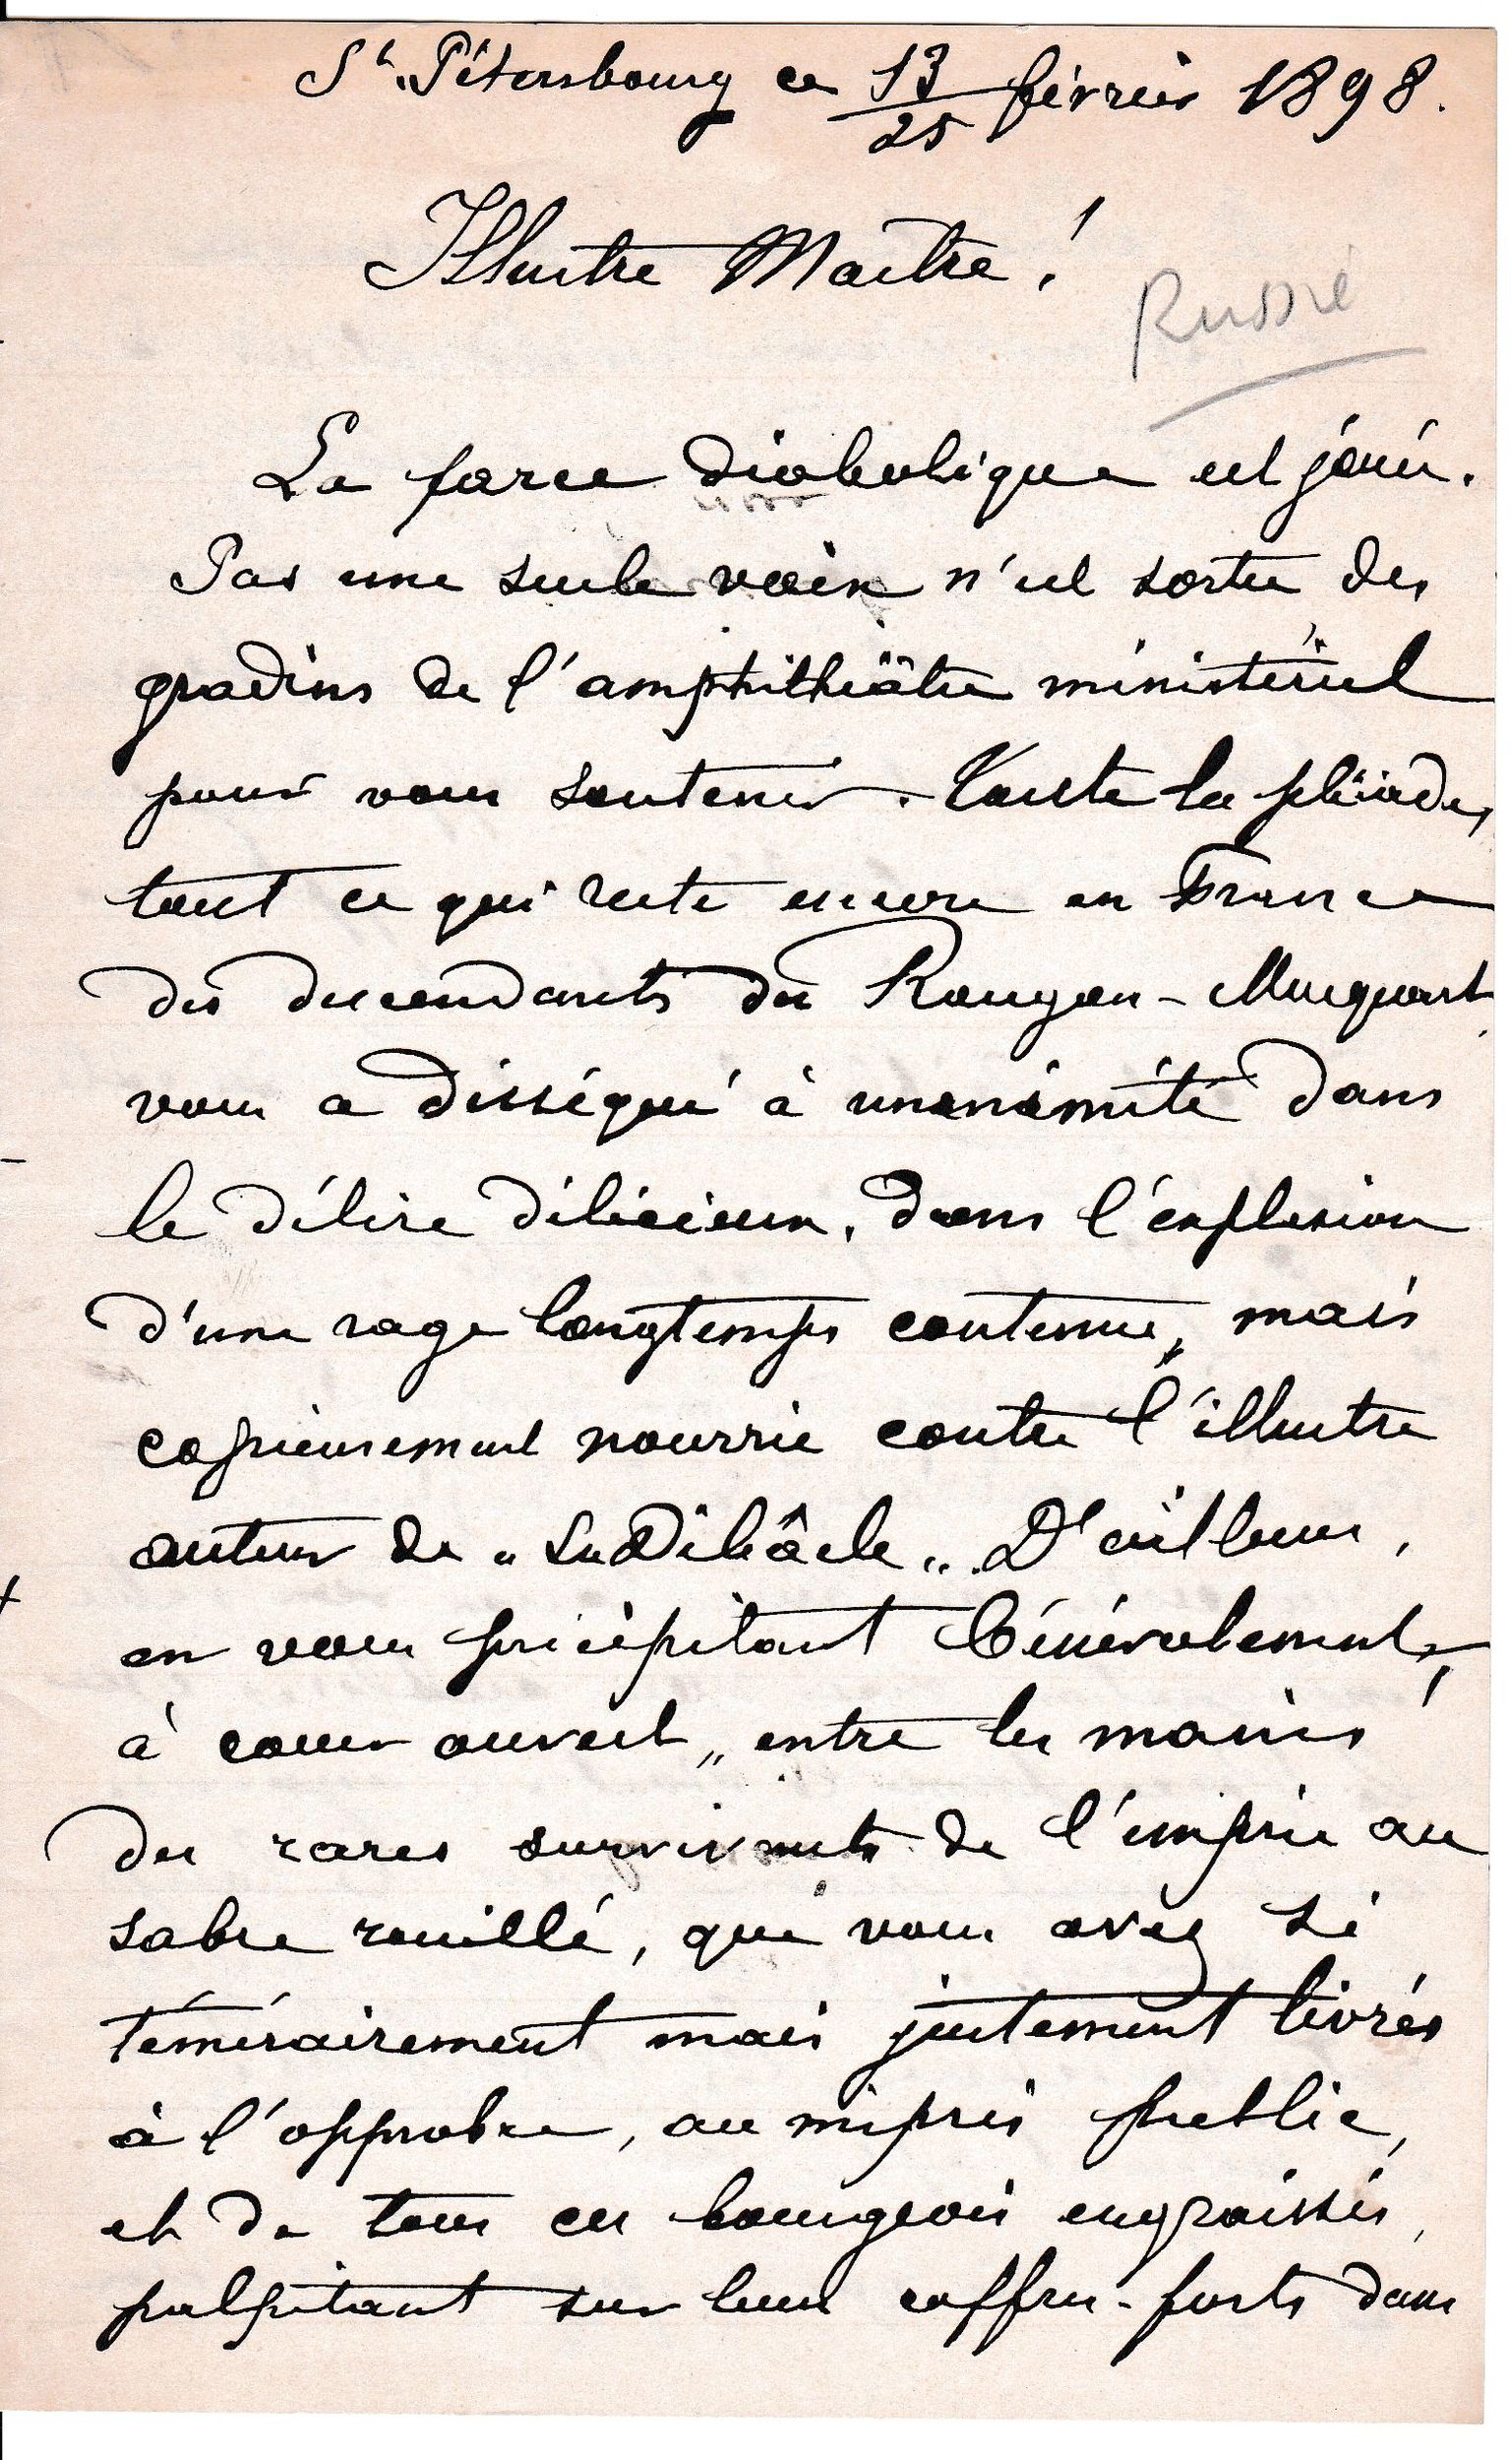 St. Pétersbourg ce 13/25 février 1898.
Illustre Maître!
Russie
La farce diabolique est jouée.
Pas une seule voix n'est sortie des
gradins de l'amphithéâtre ministériel
pour vous soutenir. Toute la pléiade,
tout ce qui reste encore en France
des descendants des Rougon-Macquart
vous a disséqué à unanimité dans
le délire délicieux, dans l'explosion
d'une rage longtemps contenue, mais
copieusement nourrie contre l'illustre
auteur de „La Débâcle„. D'ailleurs,
en vous précipitant bénévolement,
à cœur ouvert„ entre les mains
des rares survivants de l'empire au
sabre rouillé, que vous avez si
témérairement mais justement livrés
à l'opprobre, au mépris public,
et de tous ces bourgeois engraissés,
palpitant sur leurs coffres-forts dans